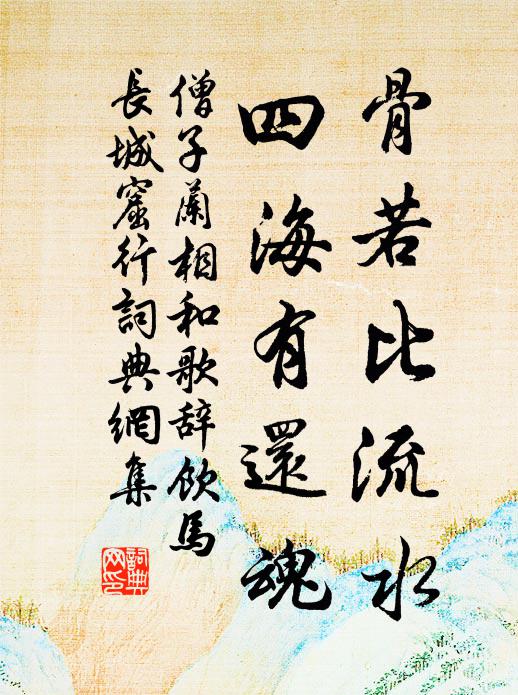 骨若比流水
四海有還魂
僧子蘭相和歌辞飲馬
長城窟行詞典網集
詞典
网印